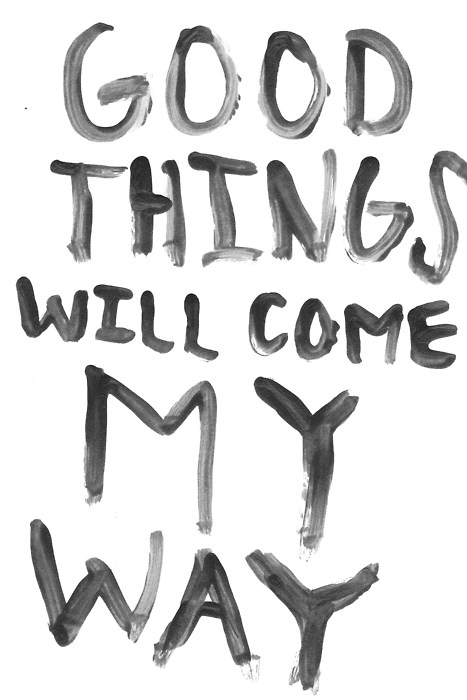 GOOD
THINGS
WILL COME
MY
WAY